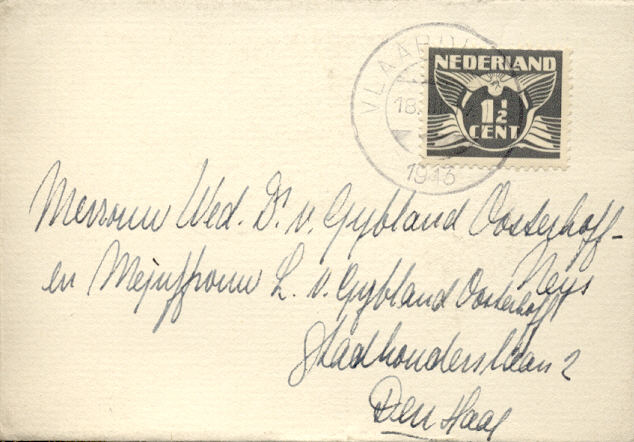 VLAARDI
18
1943
NEDERLAND
1½
CENT
Mevrouw Wed. Dr. v. Gybland Oosterhoff-
Neys
en Mejuffrouw L. v. Gybland Oosterhoff
Stadhouderslaan 2
Den Haag